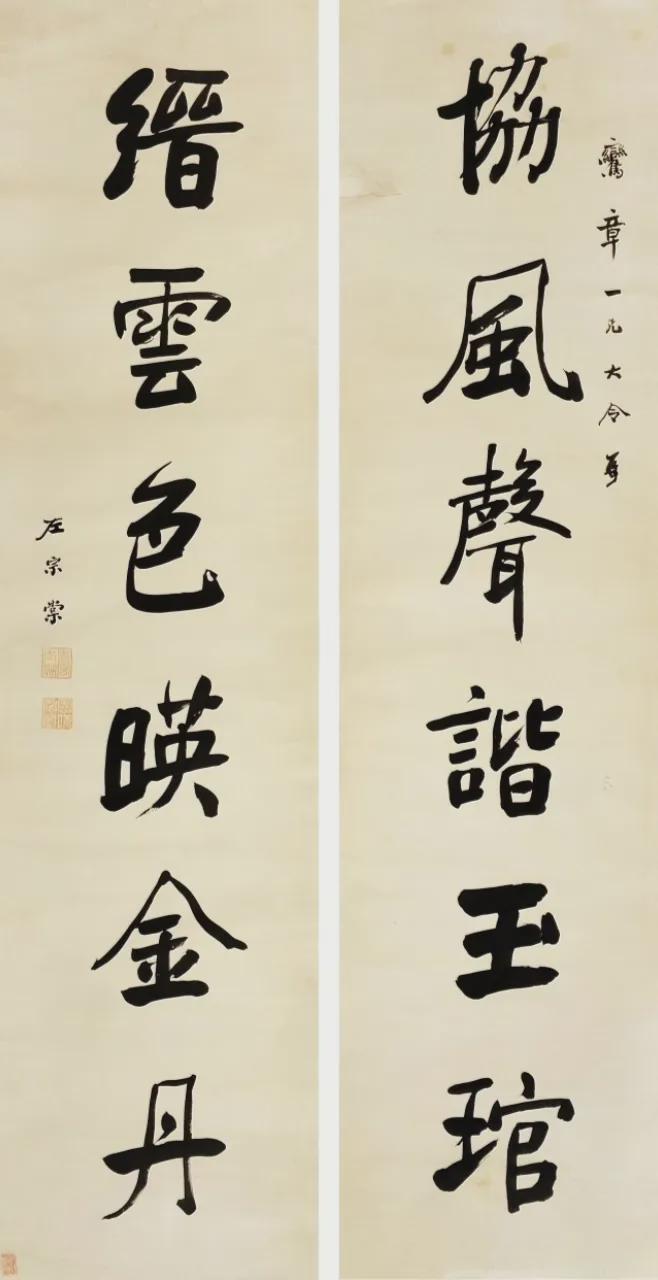 鸞章一兄大令
協風聲諧玉琯
縉雲色暎金丹
左宗棠